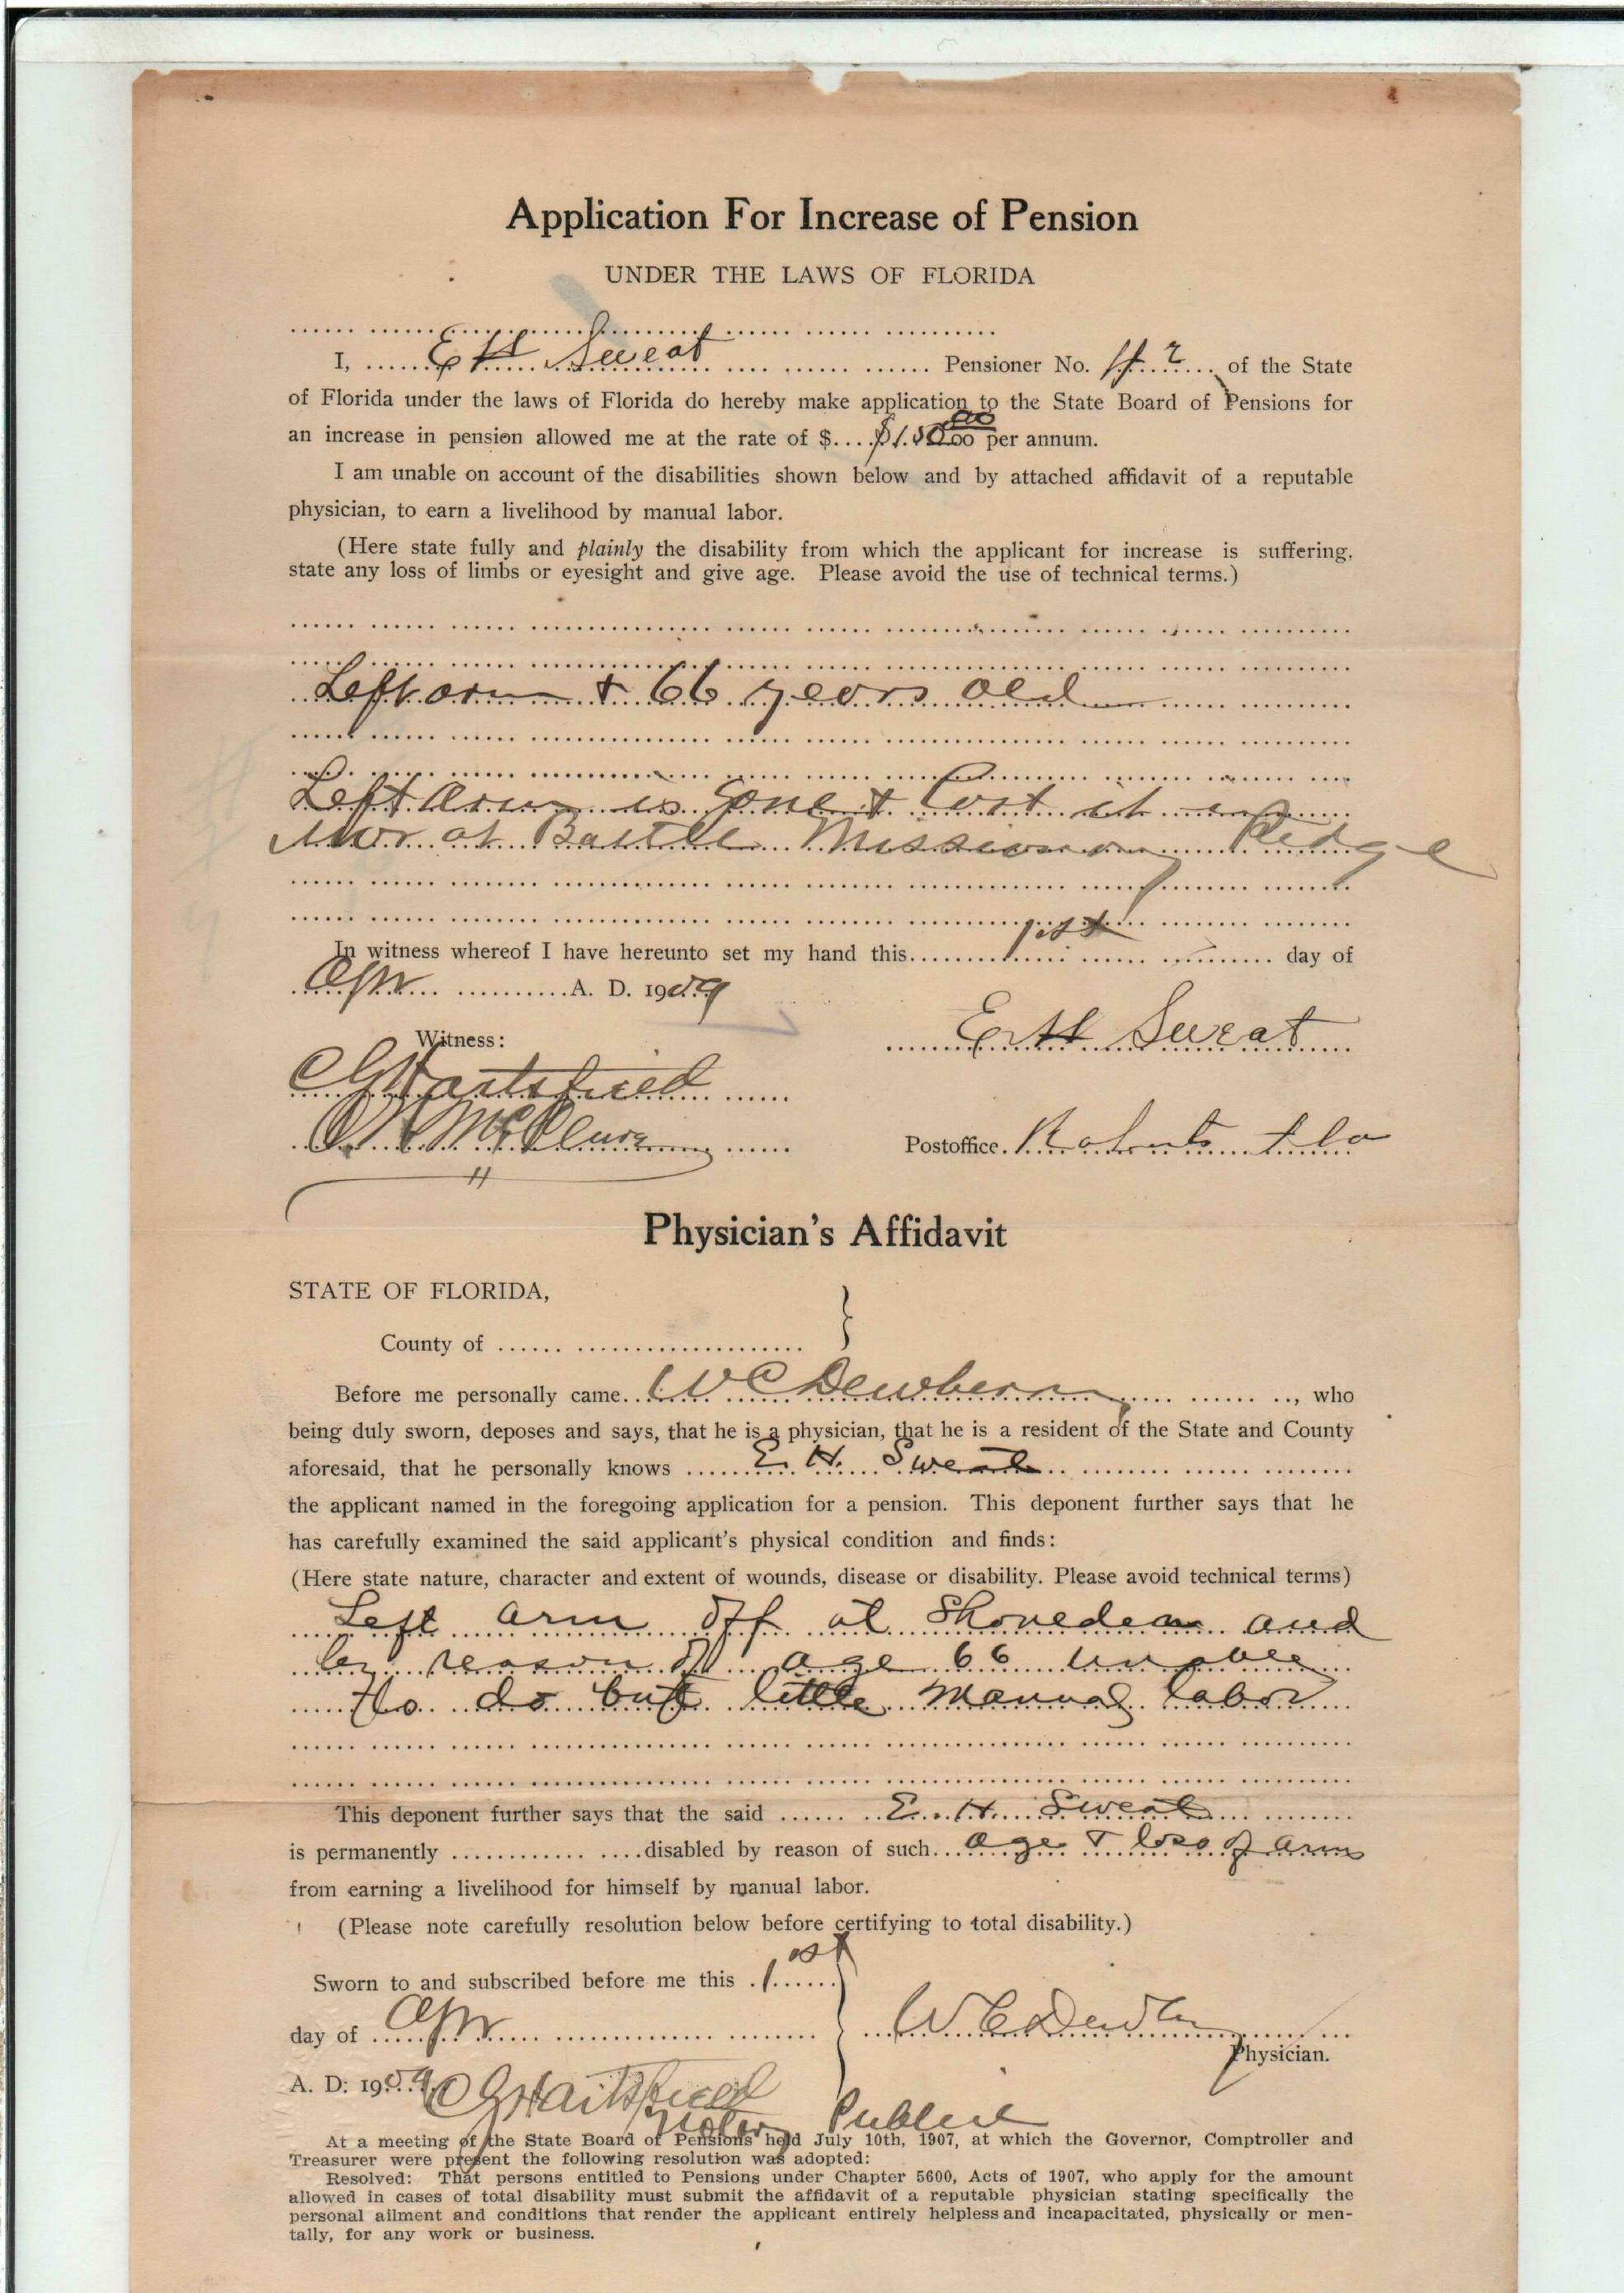 Application For Increase of Pension
UNDER THE LAWS OF FLORIDA
I, E H Sweat Pensioner No. of the State
of Florida under the laws of Florida do hereby make application to the State Board of Pensions for
an increase in pension allowed me at the rate of $ $150.00 per annum.
I am unable on account of the disabilities shown below and by attached affidavit of a reputable
physician, to earn a livelihood by manual labor.
(Here state fully and plainly the disability from which the applicant for increase is suffering,
state any loss of limbs or eyesight and give age. Please avoid the use of technical terms.)
Left arm & 66 years old
Left Arm is gone & lost it in
War at Battle Missionary Ridge
In witness whereof I have hereunto set my hand this 1st day of
Apr A. D. 1909
Witness:
E H Sweat
C G Hartsfield
Postoffice. Roberts Fla
Physician's Affidavit
STATE OF FLORIDA,
County of
Before me personally came W C Dewberry, who
being duly sworn, deposes and says, that he is a physician, that he is a resident of the State and County
aforesaid, that he personally knows E. H. Sweat
the applicant named in the foregoing application for a pension. This deponent further says that he
has carefully examined the said applicant's physical condition and finds:
(Here state nature, character and extent of wounds, disease or disability. Please avoid technical terms)
Left arm off at and
by reason of age 66 unable
to do but little manual labor
This deponent further says that the said E. H. Sweat
is permanently disabled by reason of such age & loss of arm
from earning a livelihood for himself by manual labor.
(Please note carefully resolution below before certifying to total disability.)
Sworn to and subscribed before me this 1st
day of Apr
W C Dewberry
Physician.
A. D. 1909 C G Hartsfield
Notary Public
At a meeting of the State Board of Pensions held July 10th, 1907, at which the Governor, Comptroller and
Treasurer were present the following resolution was adopted:
Resolved: That persons entitled to Pensions under Chapter 5600, Acts of 1907, who apply for the amount
allowed in cases of total disability must submit the affidavit of a reputable physician stating specifically the
personal ailment and conditions that render the applicant entirely helpless and incapacitated, physically or men-
tally, for any work or business.